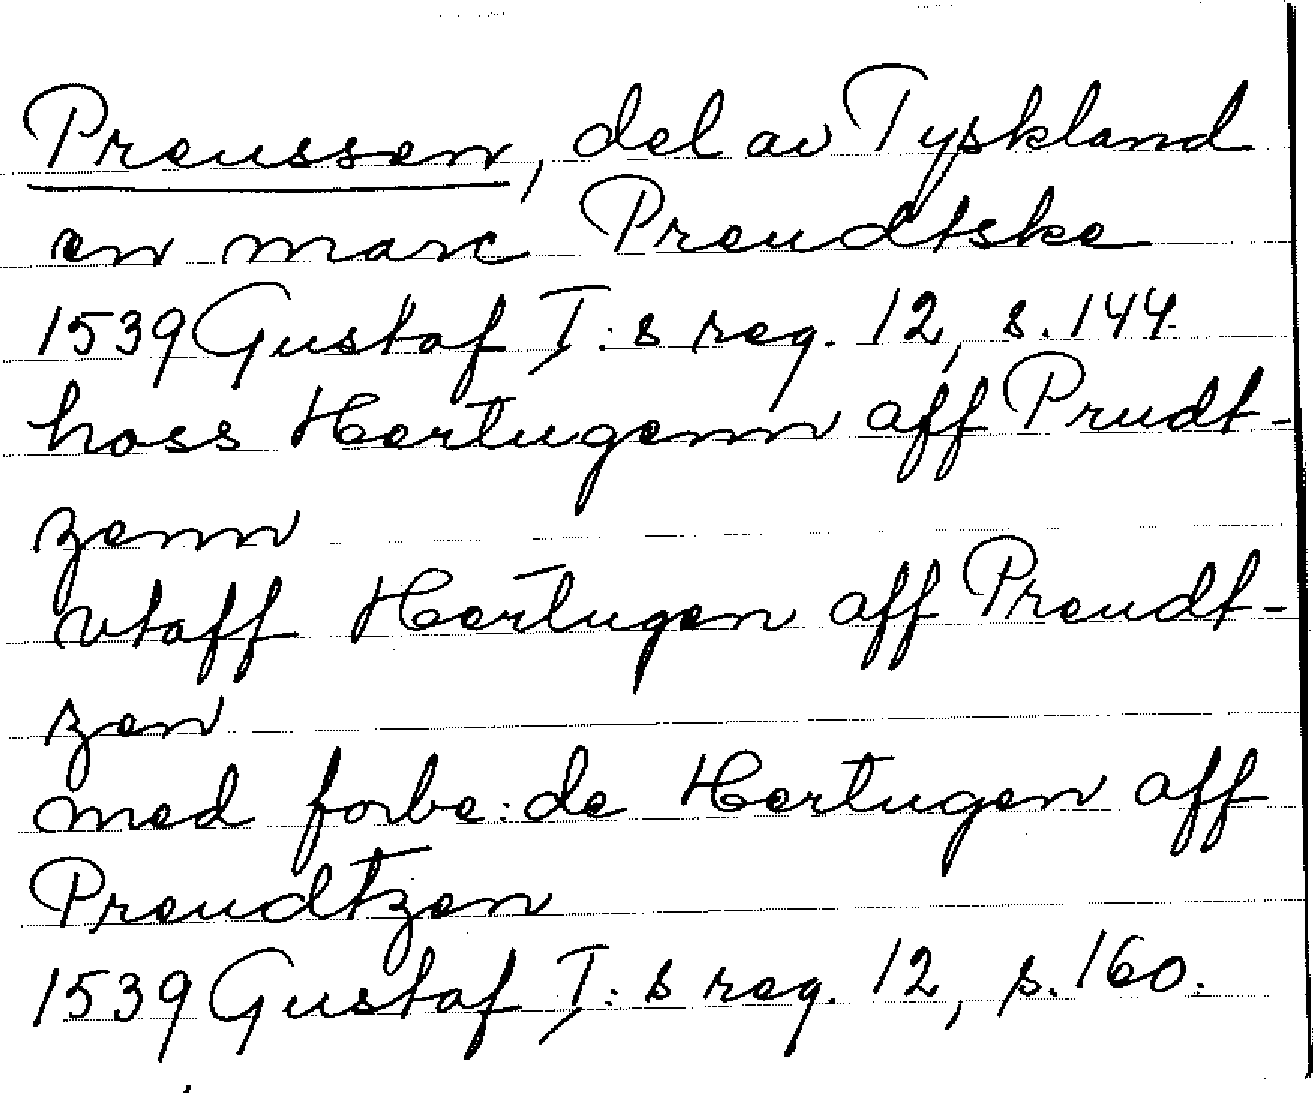 Preussen, del av Tyskland
en marc Preudtske
1539 Gustaf I:s reg. 12, s. 144.
hoss Hertugenn aff Prudt-
zenn
vtaff Hertugen aff Preudt-
zen
med forbe:de Hertugen aff
Preudtzen
1539 Gustaf I:s reg. 12, s. 160.